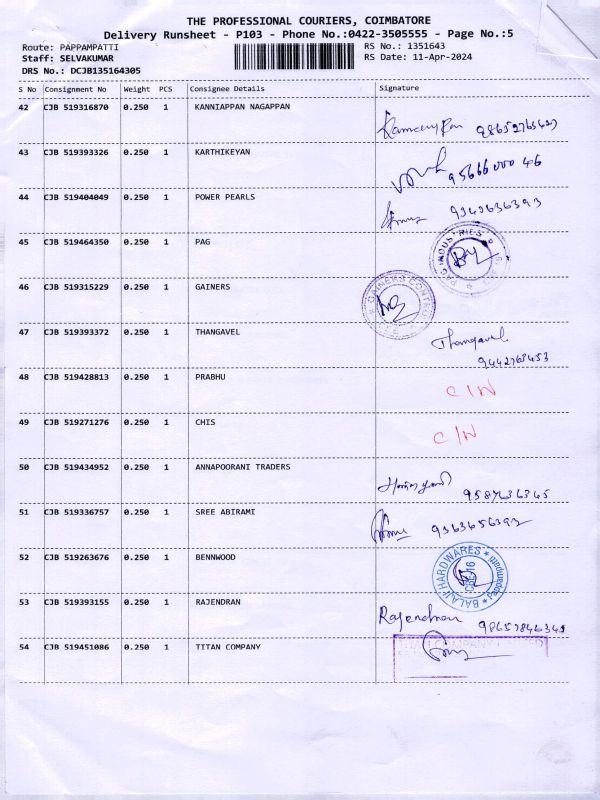 THE PROFESSIONAL COURIERS, COIMBATORE
Delivery Runsheet - P103 - Phone No.:0422-3505555 - Page No.:5
Route: PAPPAMPATTI RS No.: 1351643
Staff: SELVAKUMAR RS Date: 11-Apr-2024
DRS No.: DCJB135164305
S No Consignment No Weight PCS Consignee Details Signature
42 CJB 519316870 0.250 1 KANNIAPPAN NAGAPPAN
43 CJB 519393326 0.250 1 KARTHIKEYAN
9566600046
44 CJB 519404049 0.250 1 POWER PEARLS
45 CJB 519464350 0.250 1 PAG
PAG INDUSTRIES
46 CJB 519315229 0.250 1 GAINERS
GAINERS CONTROL
47 CJB 519393372 0.250 1 THANGAVEL
Thangavel
48 CJB 519428813 0.250 1 PRABHU
C/N
49 CJB 519271276 0.250 1 CHIS
C/N
50 CJB 519434952 0.250 1 ANNAPOORANI TRADERS
51 CJB 519336757 0.250 1 SREE ABIRAMI
52 CJB 519263676 0.250 1 BENNWOOD
BALAJI HARDWARES
53 CJB 519393155 0.250 1 RAJENDRAN
Rajendran
54 CJB 519451086 0.250 1 TITAN COMPANY